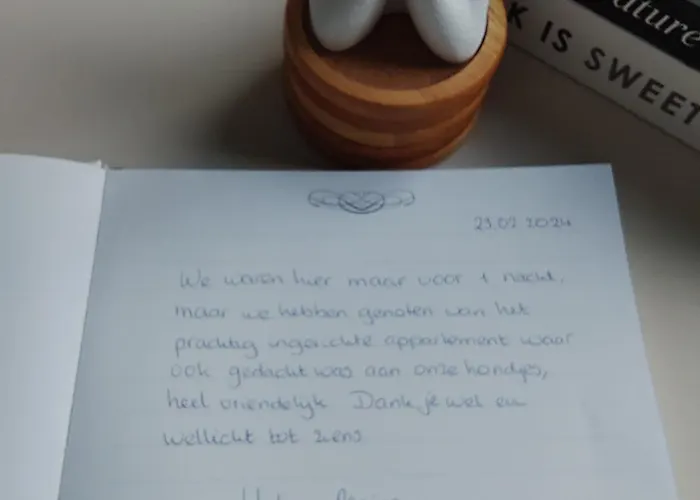 ature
K IS SWEET
23.02.2024
We waren hier maar voor 1 nacht,
maar we hebben genoten van het
prachtig ingerichte appartement waar
ook gedacht was aan onze hondjes,
heel vriendelijk Dank je wel en
wellicht tot ziens